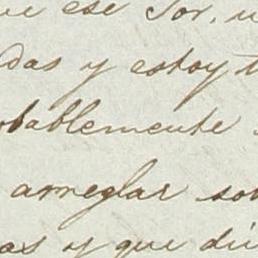 ue ese Sor. u
das y estoy t
obablemente
arreglar so
as y que di